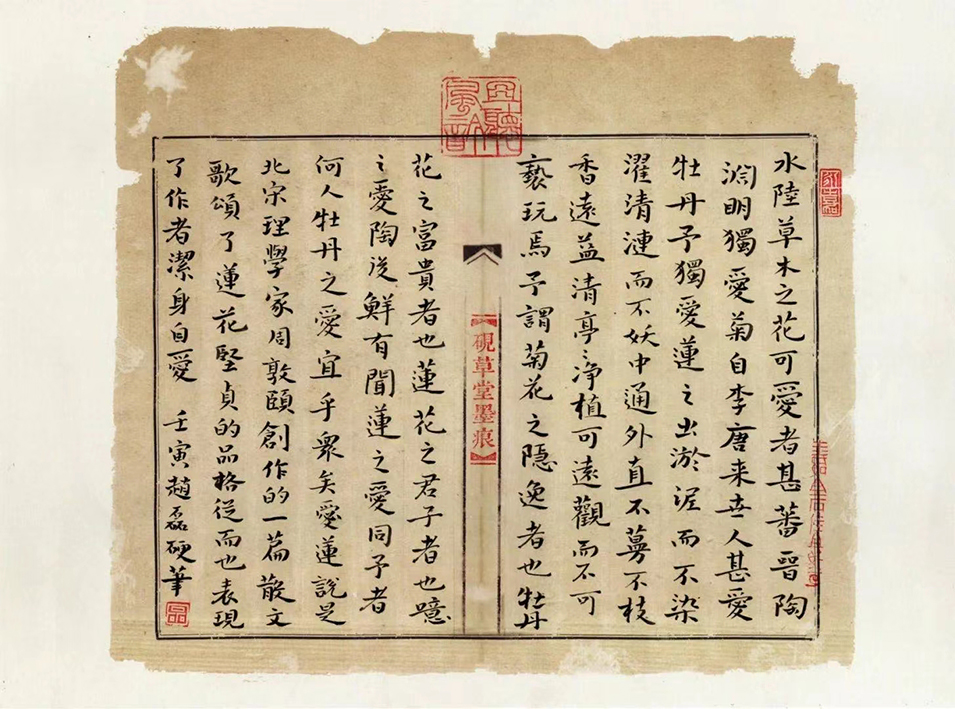 水陸草木之花可愛者甚蕃晉陶
淵明獨愛菊自李唐来世人甚愛
牡丹予獨愛蓮之出淤泥而不染
濯清漣而不妖中通外直不蔓不枝
香遠益清亭〻净植可遠觀而不可
褻玩焉予謂菊花之隐逸者也牡丹
硯草堂墨痕
花之富貴者也蓮花之君子者也噫
之愛陶後鮮有聞蓮之愛同予者
何人牡丹之愛宜乎衆矣愛蓮説是
北宋理學家周敦頤創作的一篇散文
歌頌了蓮花堅貞的品格從而也表現
了作者潔身自愛 壬寅趙磊硬筆